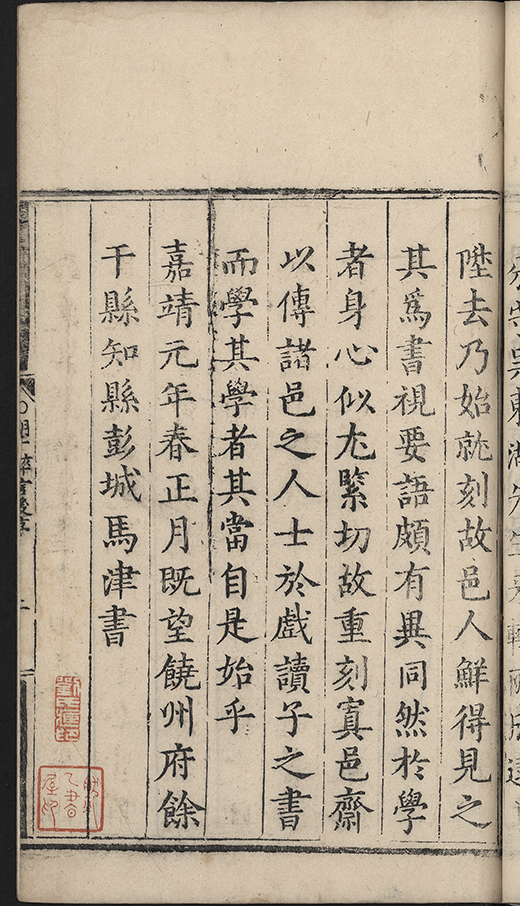 陞去乃始就刻故邑人鮮得見之
其爲書視要語頗有異同然於學
者身心似尤緊切故重刻寘邑齋
以傳諸邑之人士於戲讀子之書
而學其學者其當自是始乎
嘉靖元年春正月既望饒州府餘
干縣知縣彭城馬津書